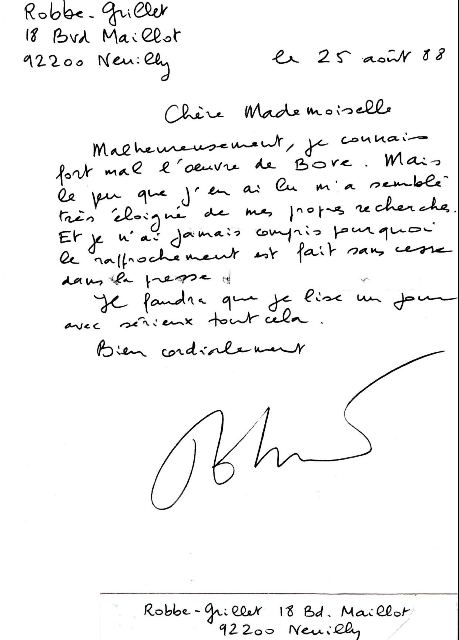 Robbe-Grillet
18 Bvd Maillot
92200 Neuilly
le 25 août 88
Chère Mademoiselle
Malheureusement, je connais
fort mal l'œuvre de Bove. Mais
le peu que j'en ai lu m'a semblé
très éloigné de mes propres recherches.
Et je n'ai jamais compris pourquoi
le rapprochement est fait sans cesse
dans la presse.
Il faudra que je lise un jour
avec sérieux tout cela.
Bien cordialement
Robbe-Grillet 18 Bd. Maillot
92200 Neuilly